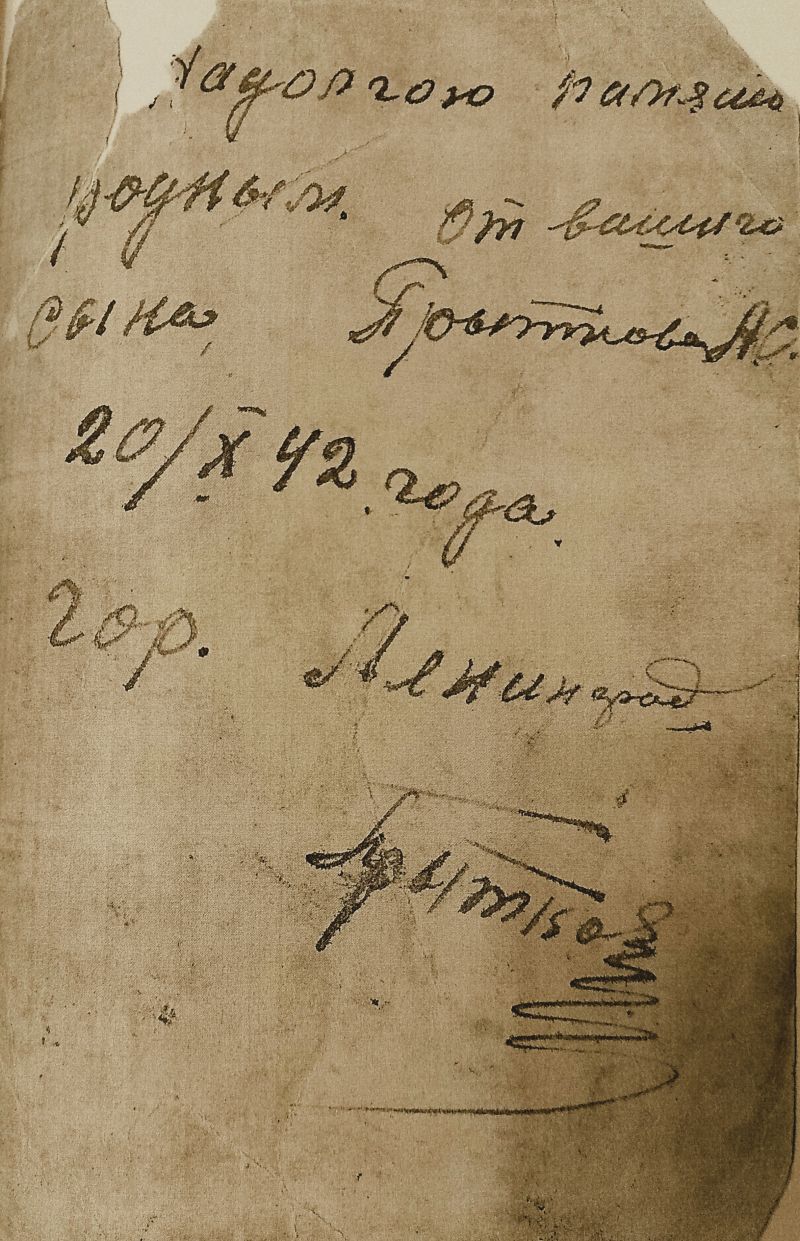 Надолгою память
родным. От вашиго
сына, Прыткова АС.
20/X 42 года.
гор. Ленинград
Прытков